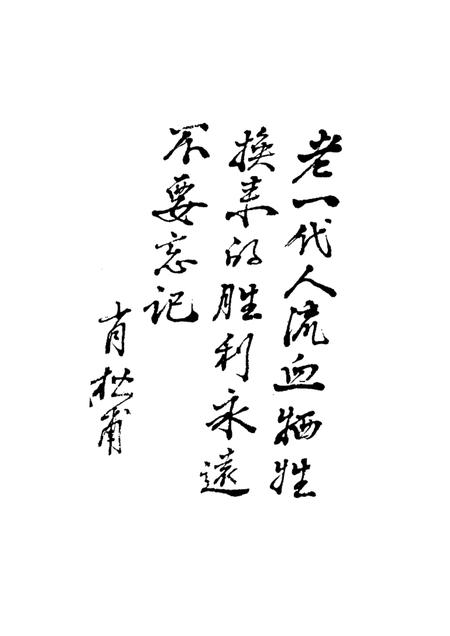 老一代人流血牺牲
换来的胜利永远
不要忘记
肖松甫